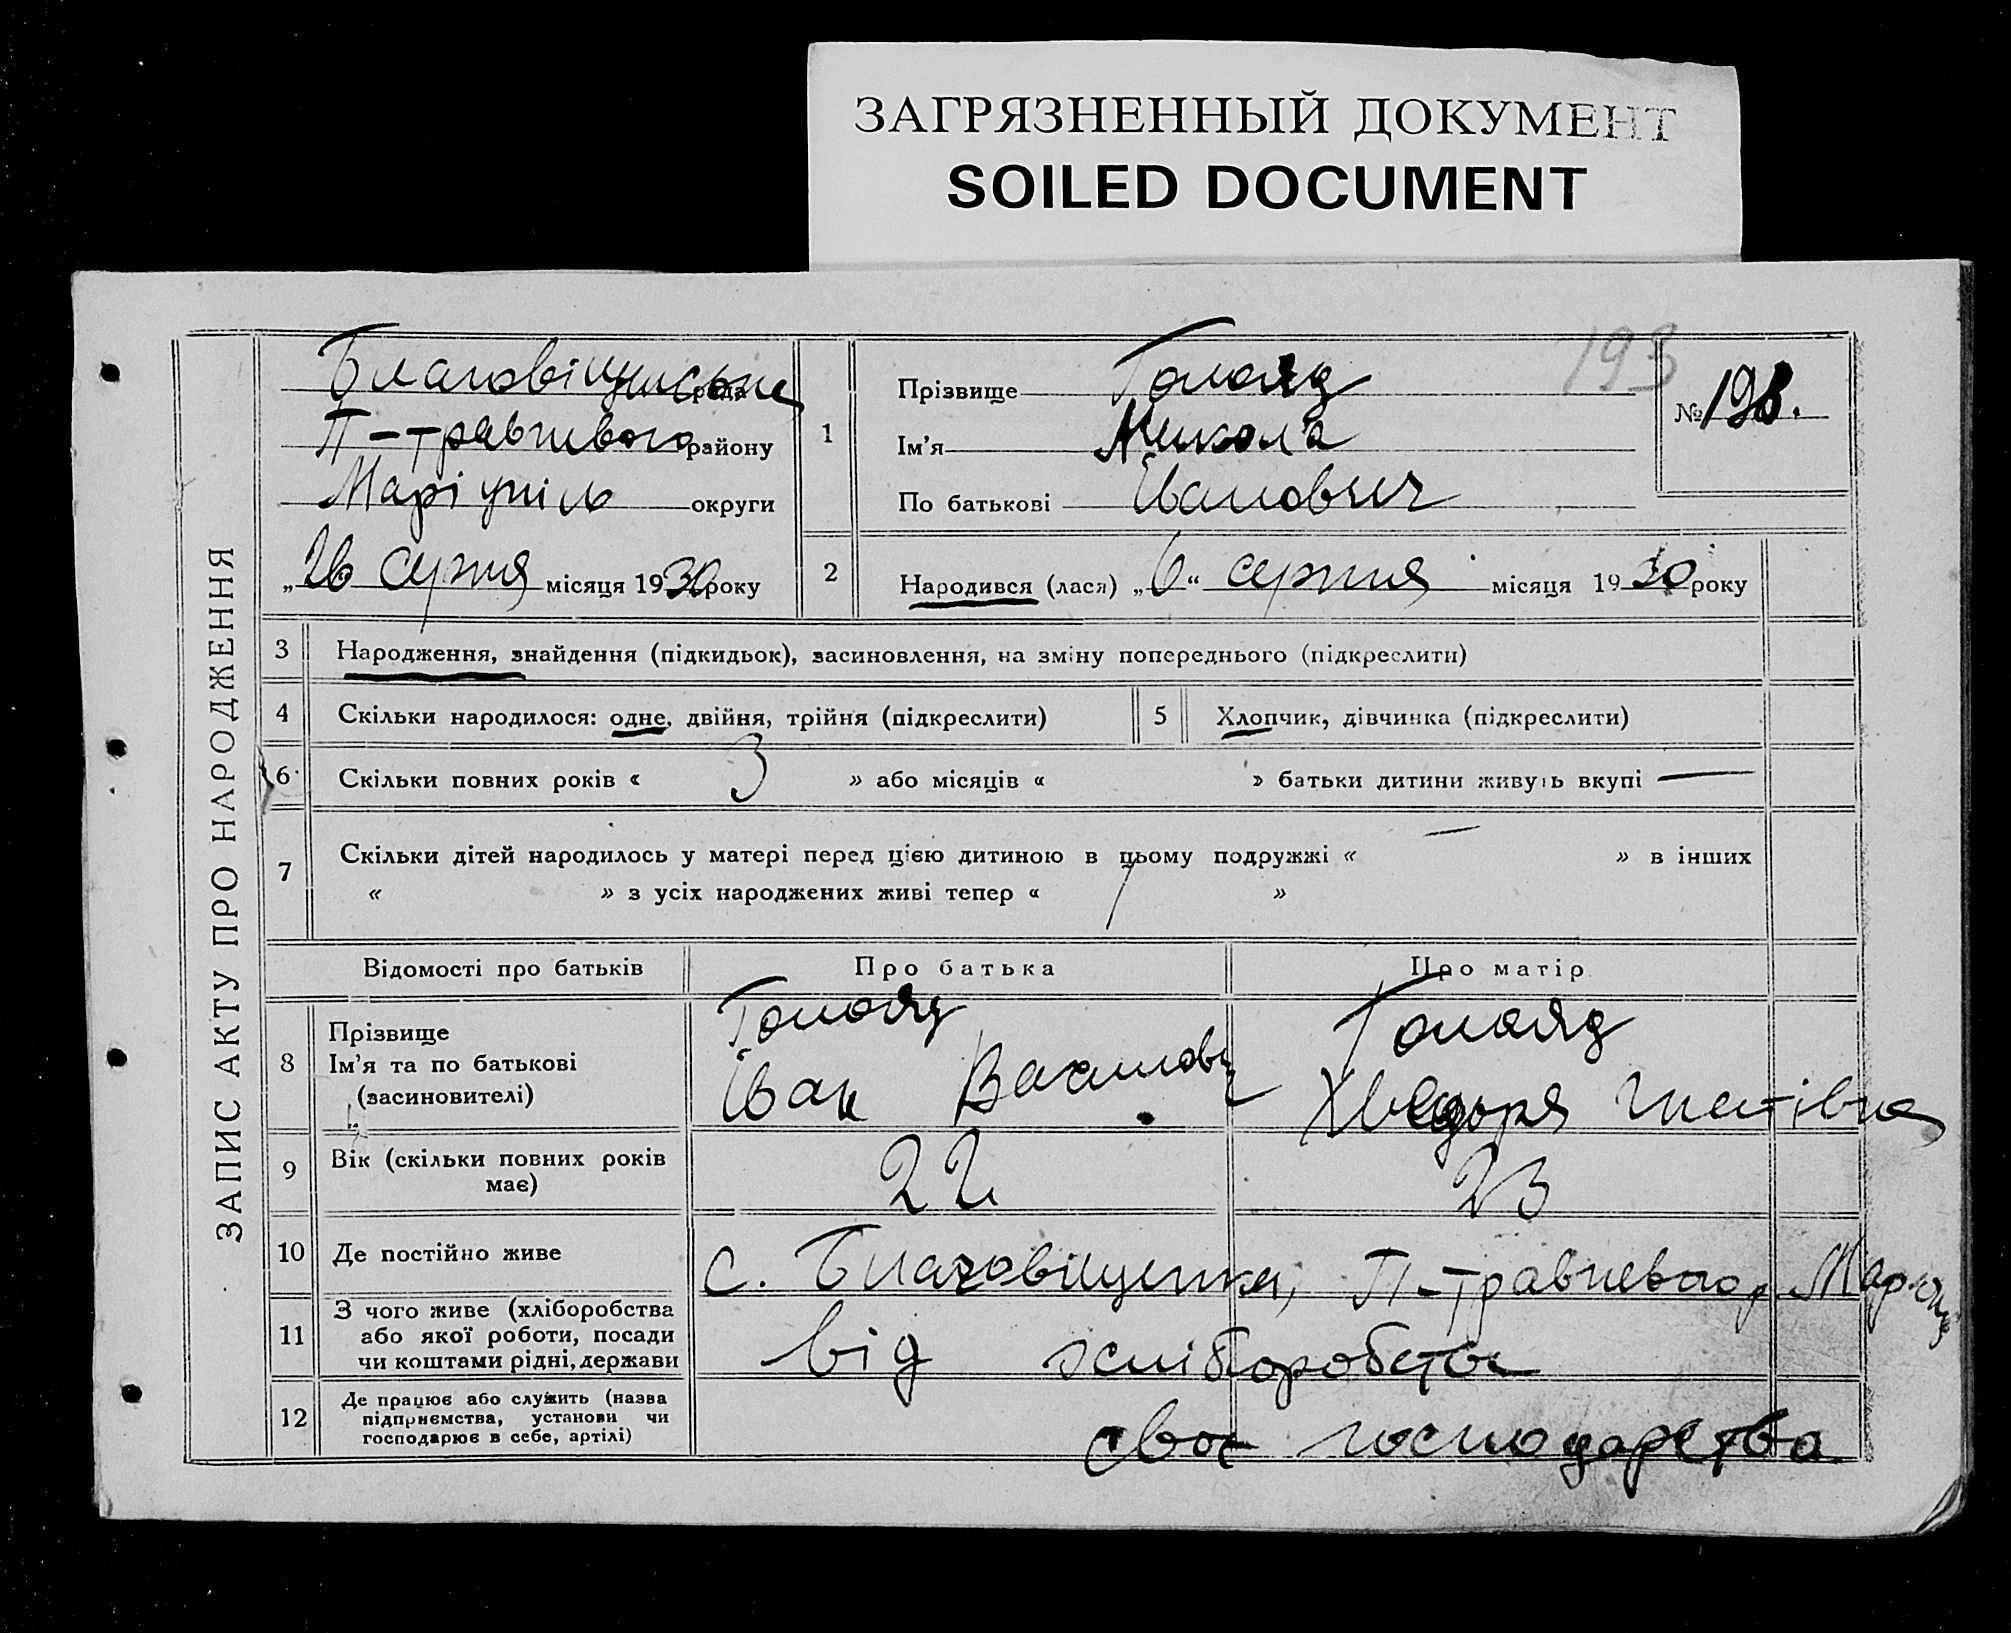 ЗАГРЯЗНЕННЫЙ ДОКУМЕНТ
SOILED DOCUMENT
ЗАПИС АКТУ ПРО НАРОДЖЕННЯ
193
рада
П-травневого району
Маріупіль округи
„26 серпня місяця 1930 року
1
Прізвище
Ім'я Микола
По батькові Іванович
№ 193.
2
Народився (лася) „6“ серпня місяця 1930 року
3 Народження, знайдення (підкидьок), засиновлення, на зміну попереднього (підкреслити)
4 Скільки народилося: одне, двійня, трійня (підкреслити)
5 Хлопчик, дівчинка (підкреслити)
6 Скільки повних років « 3 » або місяців « » батьки дитини живуть вкупі —
7 Скільки дітей народилось у матері перед цією дитиною в цьому подружжі « — » в інших
« » з усіх народжених живі тепер « 1 »
Відомості про батьків Про батька Про матір
8 Прізвище
Ім'я та по батькові
(засиновителі)
Іван
9 Вік (скільки повних років
має)
22 23
10 Де постійно живе с. Благовіщенка, П-травневого р.
11 З чого живе (хліборобства
або якої роботи, посади
чи коштами рідні, держави
від
12 Де працює або служить (назва
підприємства, установи чи
господарює в себе, артілі)
своє господарства